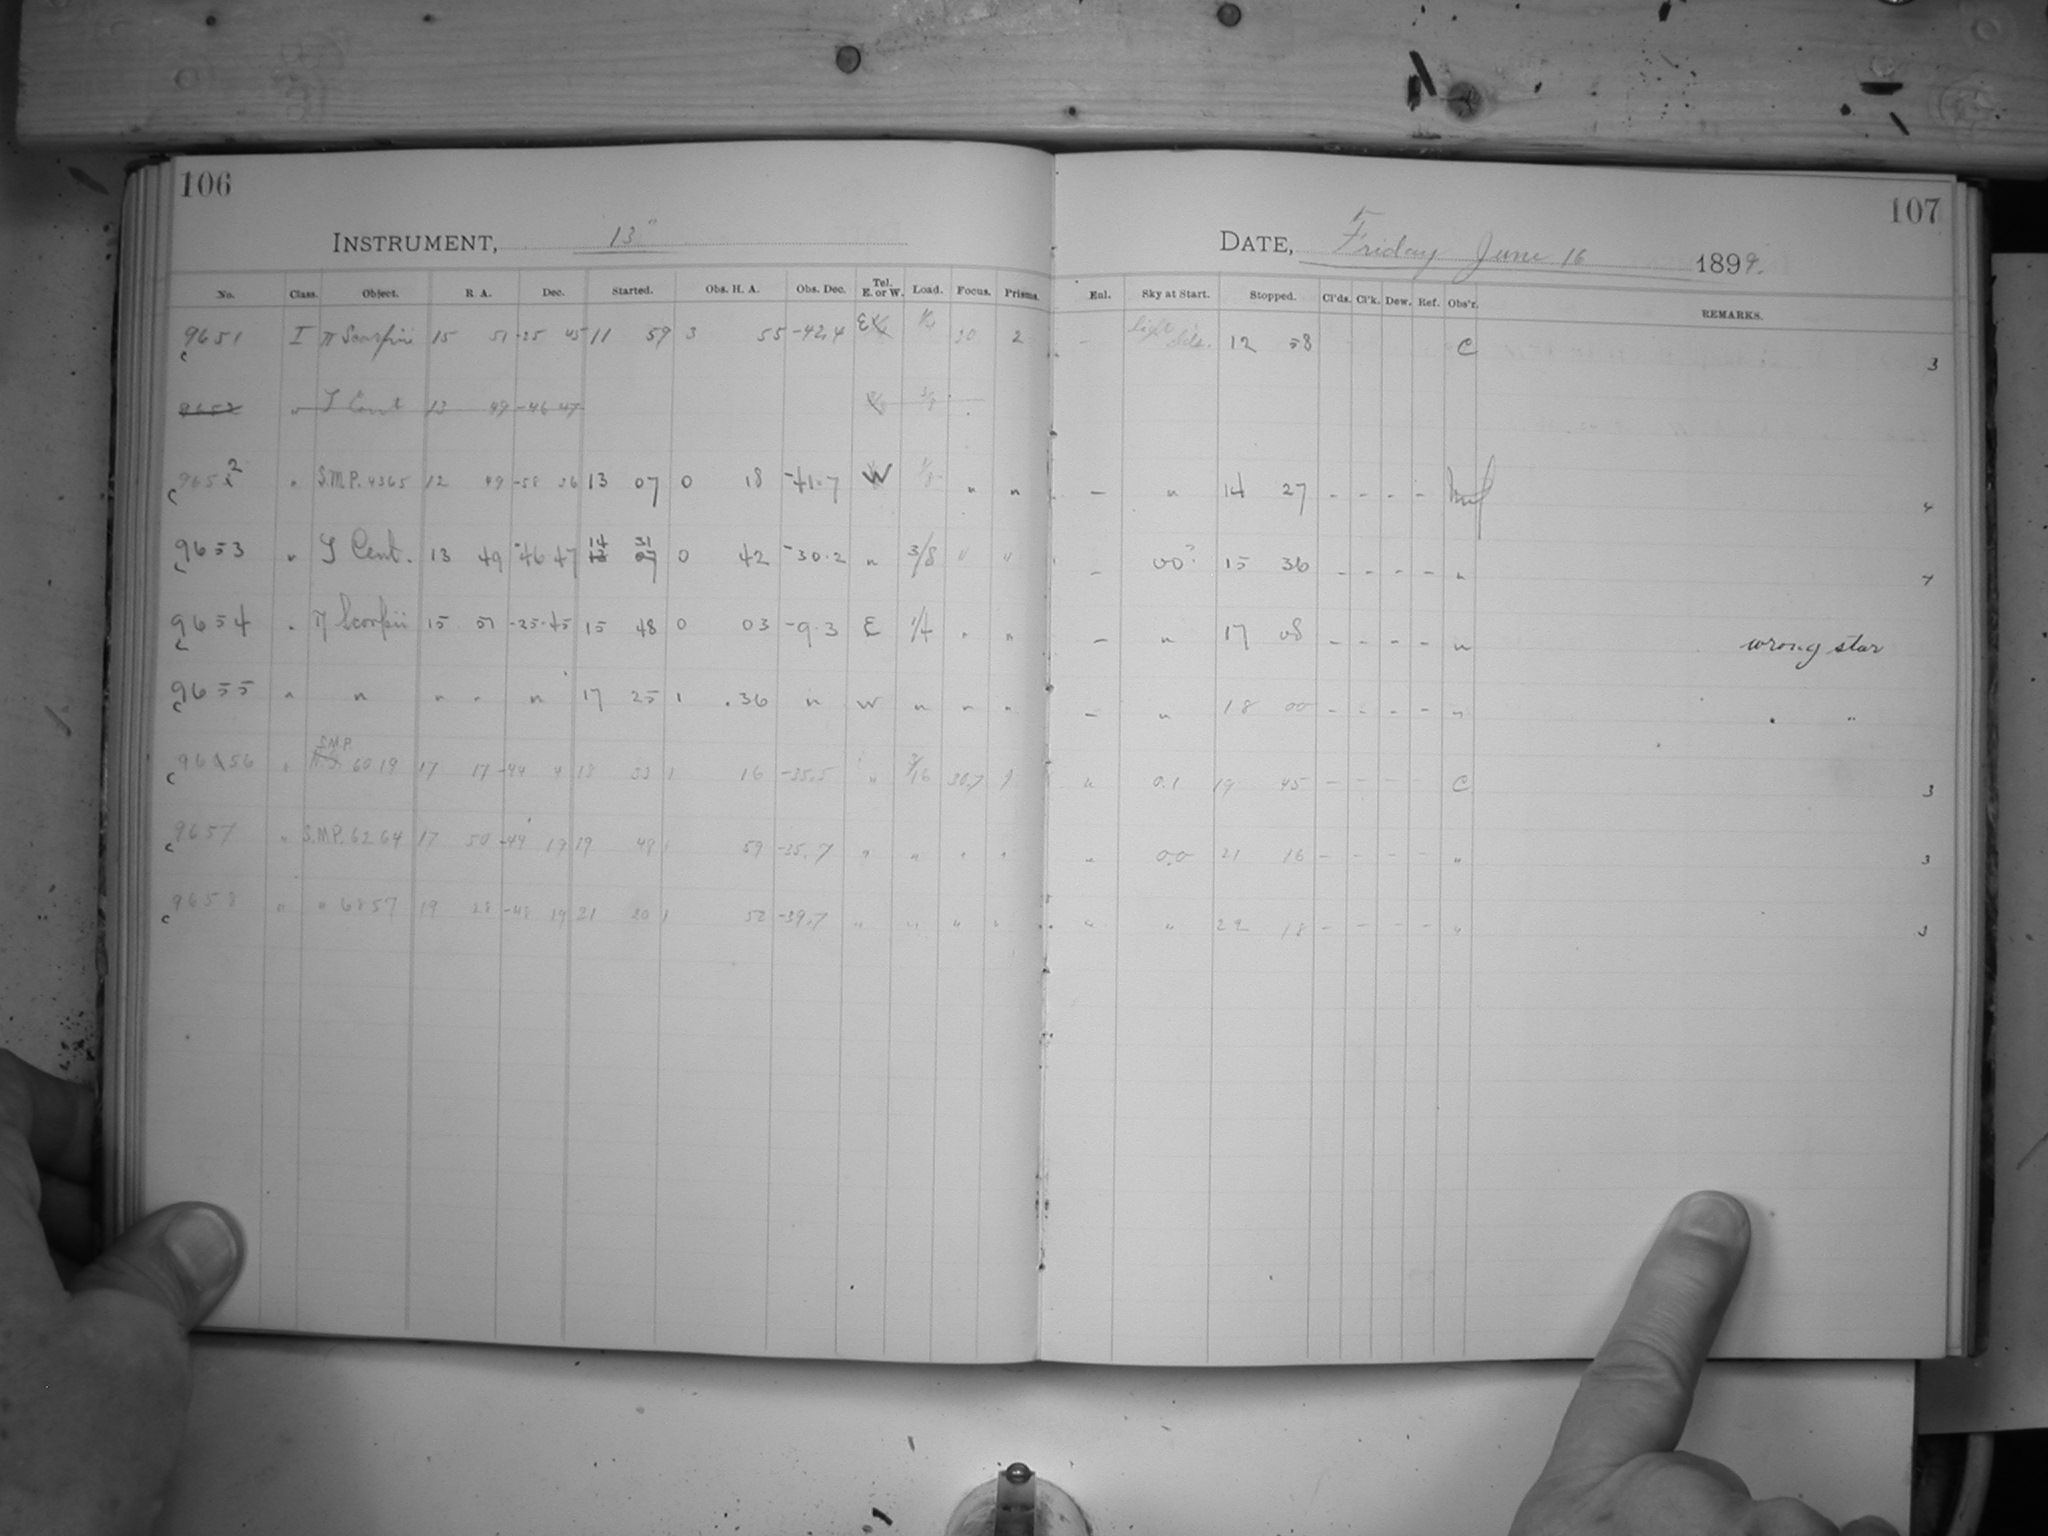 106
INSTRUMENT, 13"
No. Class. Object. R. A. Dec. Started. Obs. H. A. Obs. Dec. Tel. E. or W. Load. Focus. Prisms.
9651 I π Scorpii 15 51 -25 45 11 59 3 55 -42.4 E 1/4 30 2
9652 " Cent 13 49 -46 47 3/8
9652 " S.M.P. 4365 12 49 -58 26 13 07 0 18 -41.7 W 1/8 " "
9653 " Cent. 13 49 -46 47 14 31 13 07 0 42 -30.2 " 3/8 " "
9654 " π Scorpii 15 51 -25.45 15 48 0 03 -9.3 E 1/4 " "
9655 " " " " " 17 25 1 .36 " W " " "
9656 " S.M.P. 6019 17 17 -44 4 18 33 1 16 -35.5 " /16 30.7 1
9657 " S.M.P. 6264 17 50 -44 19 19 49 1 59 -35.7 " " " "
9658 " " 6857 19 28 -48 19 21 20 1 52 -39.7 " " " "
107
DATE, Friday June 16 1899.
Enl. Sky at Start. Stopped. Cl'ds. Cl'k. Dew. Ref. Obs'r. REMARKS.
- light clds. 12 58 C 3
- " 14 27 - - - - 4
- 00? 15 36 - - - - " 7
- " 17 08 - - - - " wrong star
- " 18 00 - - - - " " "
" 0.1 19 45 - - - - C 3
" 0.0 21 16 - - - - " 3
" " 22 18 - - - - " 3